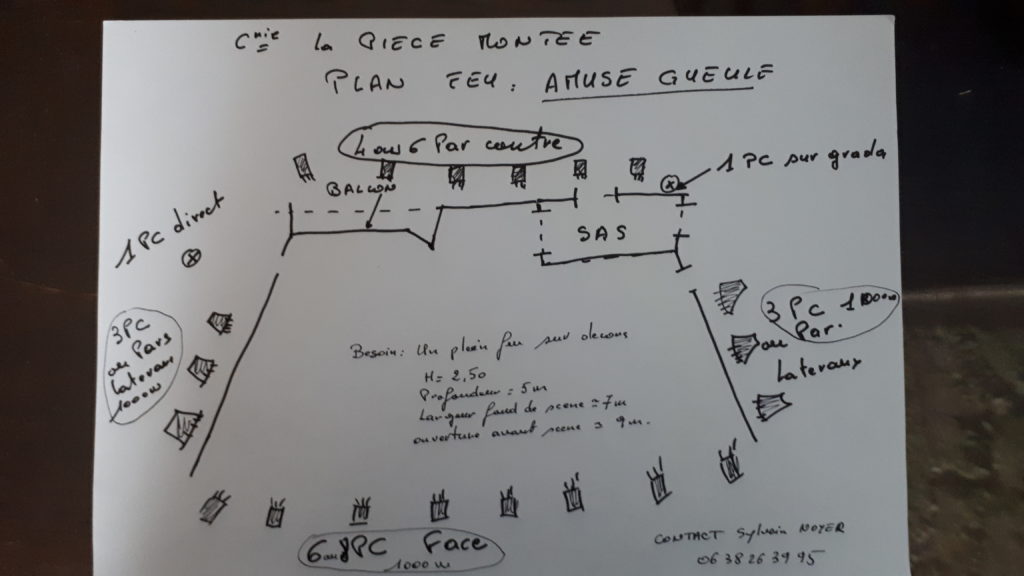 Cnie la PIECE MONTEE
PLAN FEU : AMUSE GUEULE
4 ou 6 Par contre
1 PC sur grada
BALCON
1 PC direct
SAS
3 PC
ou Pars
Lateraux
1000w
3 PC 1000w
ou Par.
Lateraux
Besoin : Un plein feu sur decors
H = 2,50
Profondeur = 5m
Largeur fond de scene = 7m
ouverture avant scene = 9m.
6 ou 8 PC Face
1000w
CONTACT Sylvain NOYER
06 38 26 39 95